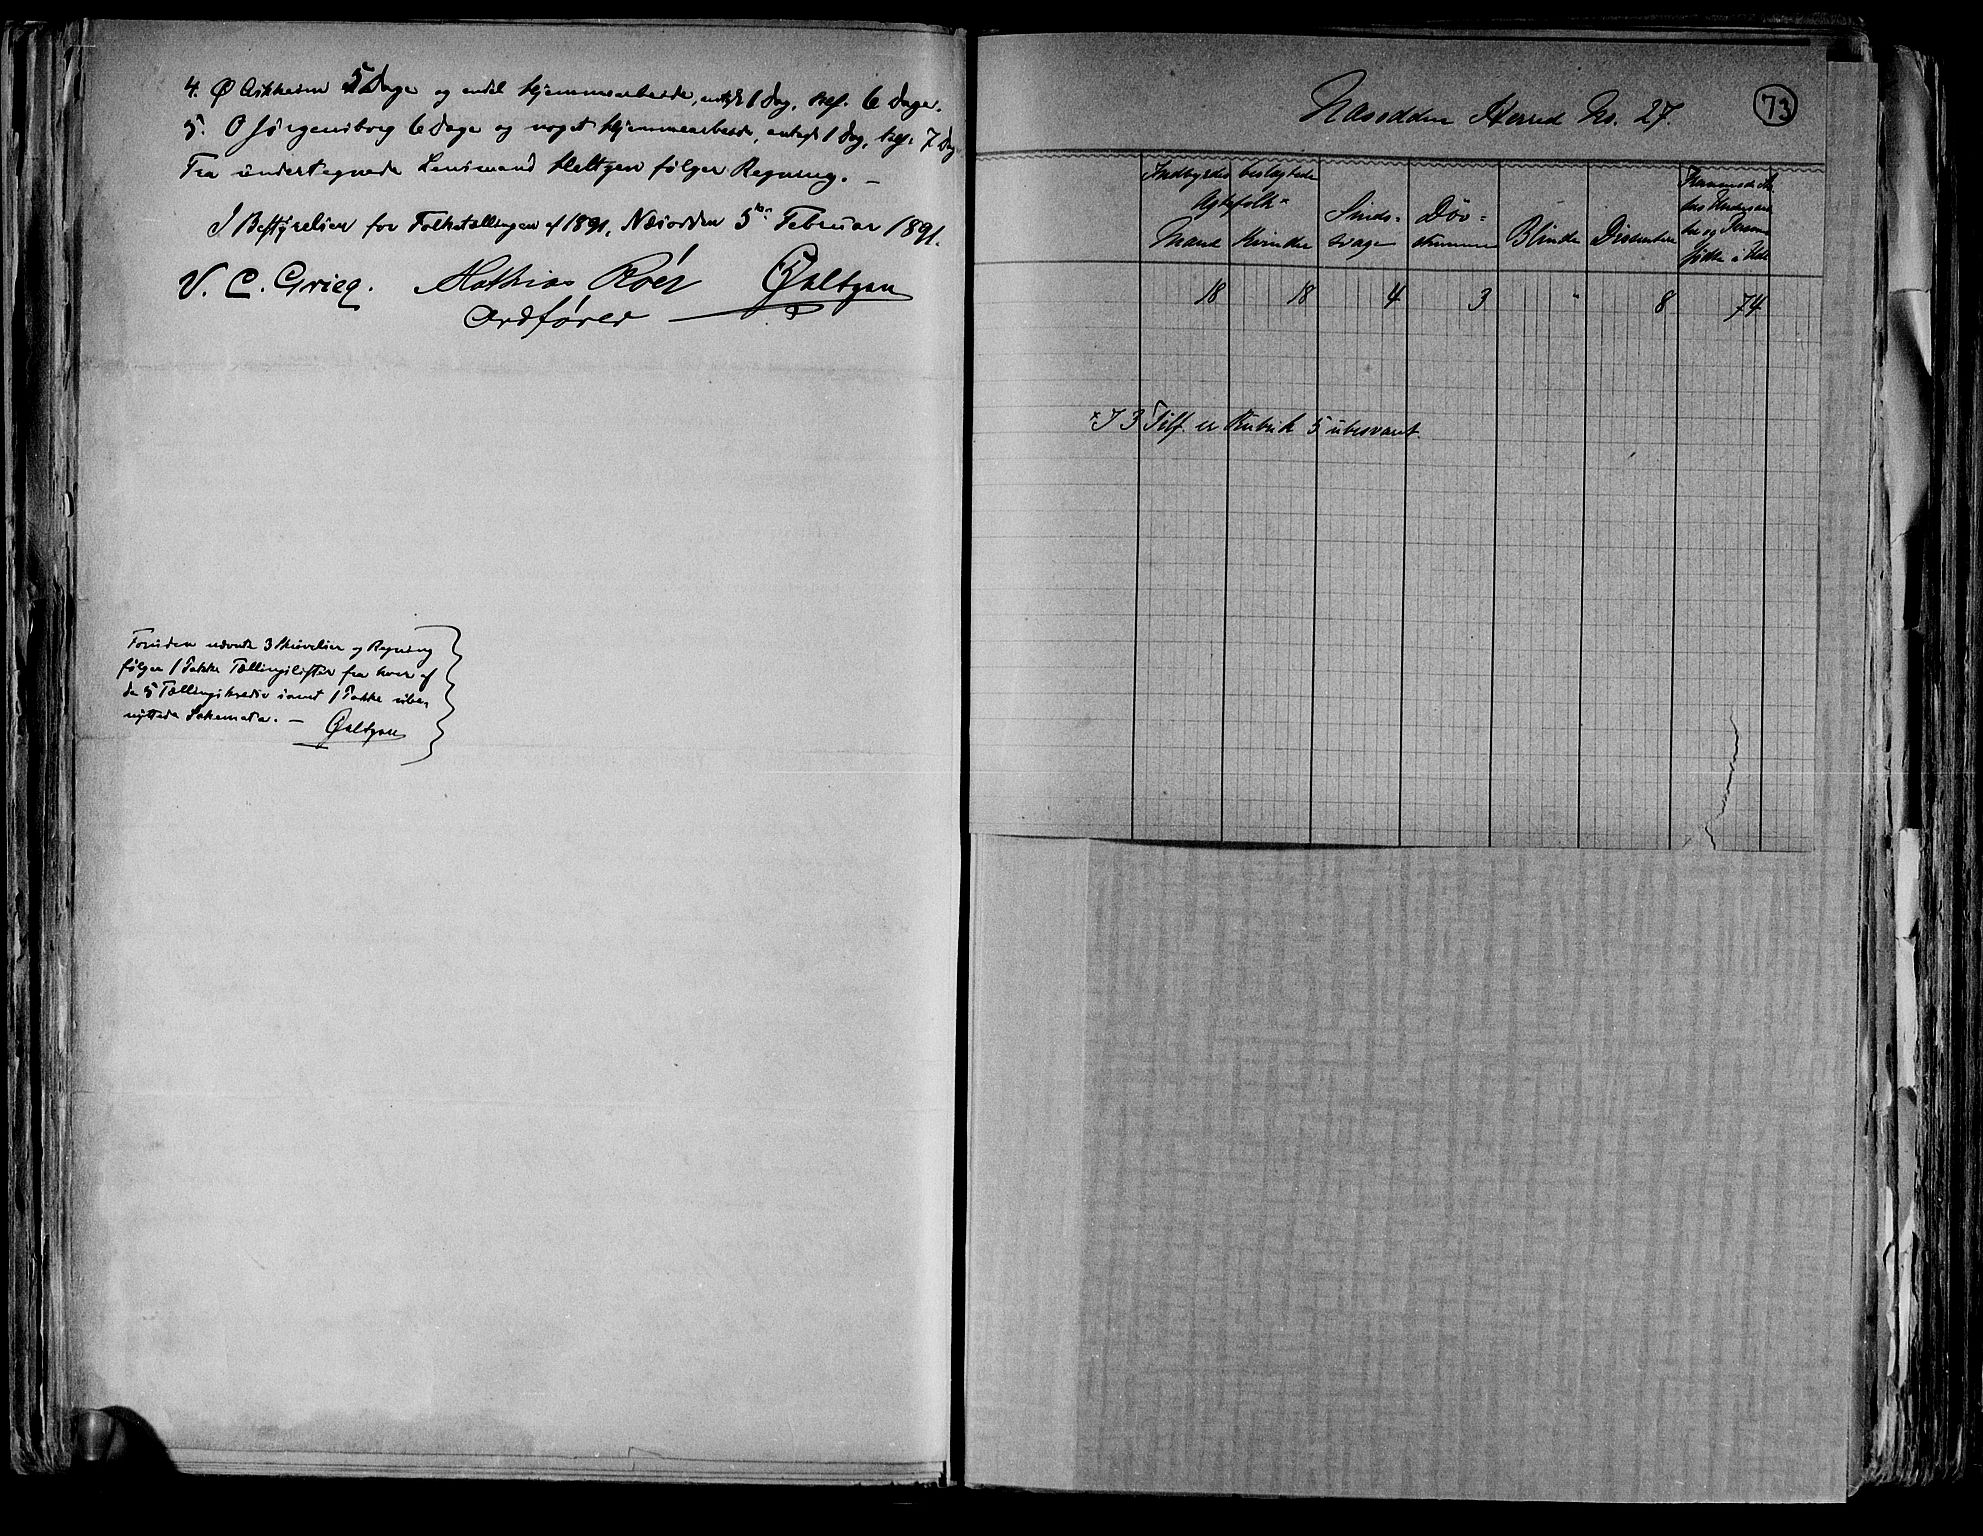 4. O Askheim 5 Dage og endel Hjemmearbeide, antat 1 Dag, tils. 6 Dage.
5. O Jørgensborg 6 Dage og noget Hjemmearbeide, antagt 1 Dag, tils. 7 Dag
Fra undertegnede Lensmand Heltzen følger Regning. —
I Bestyrelsen for Folketællingen af 1891, Næsodden 5te Februar 1891.
V. C. Grieg. Mathias Roér Heltzen
Ordfører
Foruden nævnte 3 Skrivelser og Regning
følger 1 Pakke Tællingslister fra hver af
de 5 Tællingskredse samt 1 Pakke ube-
nyttede Schemata. — Heltzen
Næsodden Herred No. 27.
73
Indbyrdes beslægtede
Ægtefolk ×
Mænd Kvinder
Sinds-
svage
Døv-
stumme
Blinde
Dissentere
Fremmede
og Personer
fødte i Udl
18 18 4 3 " 8 74
× I 3 Tilf. er Rubrik 5 ubesvaret.